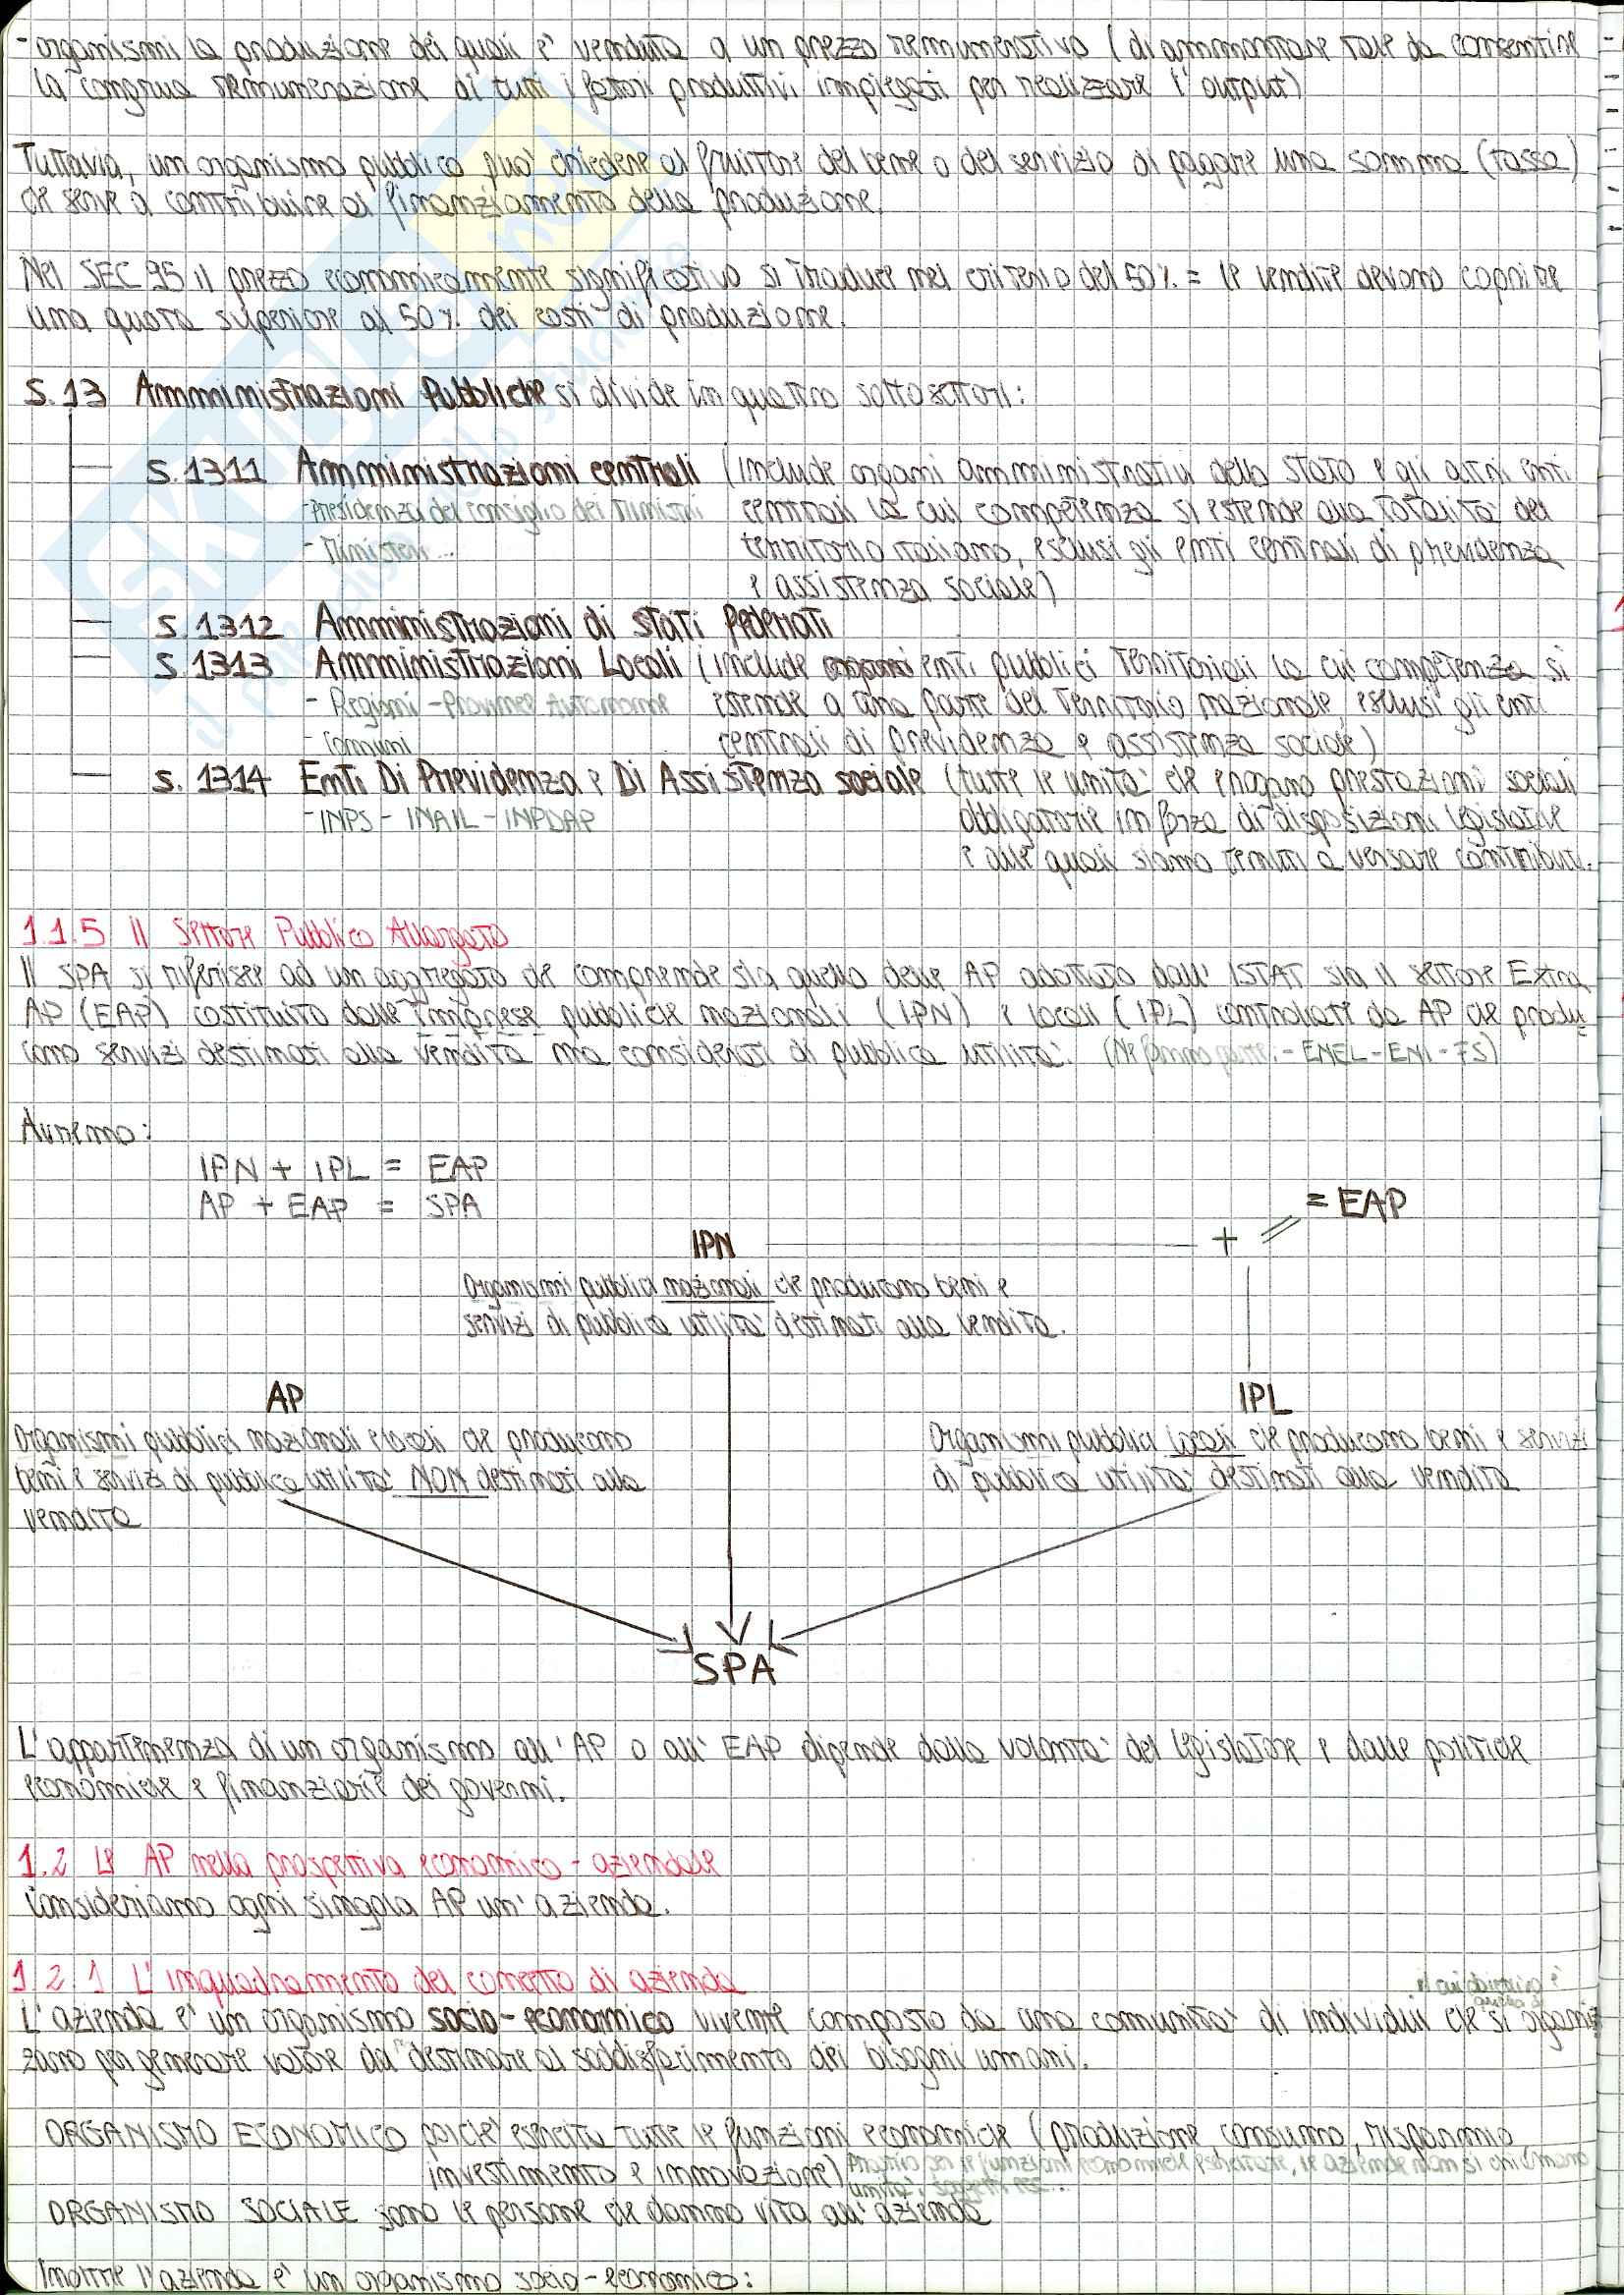 - organismi la produzione dei quali è venduta a un prezzo remunerativo (di ammontare tale da consentire
la congrua remunerazione di tutti i fattori produttivi impiegati per realizzare l'output)
Tuttavia, un organismo pubblico può chiedere al fruitore del bene o del servizio di pagare una somma (tassa)
che serve a contribuire al finanziamento della produzione.
Nel SEC 95 il prezzo economicamente significativo si traduce nel criterio del 50% = le vendite devono coprire
una quota superiore al 50% dei costi di produzione.
S.13 Amministrazioni Pubbliche si divide in quattro sottosettori:
S.1311 Amministrazioni centrali (include organi amministrativi dello Stato e gli altri enti
- Presidenza del consiglio dei Ministri centrali la cui competenza si estende alla totalità del
- Ministeri... territorio italiano, esclusi gli enti centrali di previdenza
e assistenza sociale)
S.1312 Amministrazioni di stati Federati
S.1313 Amministrazioni Locali (include enti pubblici territoriali la cui competenza si
- Regioni - Province Autonome estende a una parte del territorio nazionale, esclusi gli enti
- Comuni centrali di previdenza e assistenza sociale)
S.1314 Enti Di Previdenza e Di Assistenza sociale (tutte le unità che erogano prestazioni sociali
- INPS - INAIL - INPDAP obbligatorie in forza di disposizioni legislative
e alle quali siamo tenuti a versare contributi.
1.1.5 Il Settore Pubblico Allargato
Il SPA si riferisce ad un aggregato che comprende sia quello delle AP adottato dall'ISTAT sia il settore Extra
AP (EAP) costituito dalle Imprese pubbliche nazionali (IPN) e locali (IPL) controllate da AP che produ-
cono servizi destinati alla vendita ma considerati di pubblica utilità. (Ne fanno parte: - ENEL - ENI - FS)
Avremo:
IPN + IPL = EAP
AP + EAP = SPA
= EAP
IPN +
Organismi pubblici nazionali che producono beni e
servizi di pubblica utilità destinati alla vendita.
AP IPL
Organismi pubblici nazionali e locali che producono Organismi pubblici locali che producono beni e servizi
beni e servizi di pubblica utilità NON destinati alla di pubblica utilità destinati alla vendita
vendita
SPA
L'appartenenza di un organismo all'AP o all'EAP dipende dalla volontà del legislatore e dalle politiche
economiche e finanziarie dei governi.
1.2 Le AP nella prospettiva economico - aziendale
Consideriamo ogni singola AP un'azienda.
1.2.1 L'inquadramento del concetto di azienda
il cui obiettivo è
L'azienda è un organismo socio-economico vivente composto da una comunità di individui che si organiz-
zano per generare valore da destinare al soddisfacimento dei bisogni umani.
ORGANISMO ECONOMICO poiché esercita tutte le funzioni economiche (produzione, consumo, risparmio,
investimento e innovazione) Proprio per le funzioni economiche esercitate, le aziende non si chiamano
unità
ORGANISMO SOCIALE sono le persone che danno vita all'azienda
Inoltre l'azienda è un organismo socio-economico: